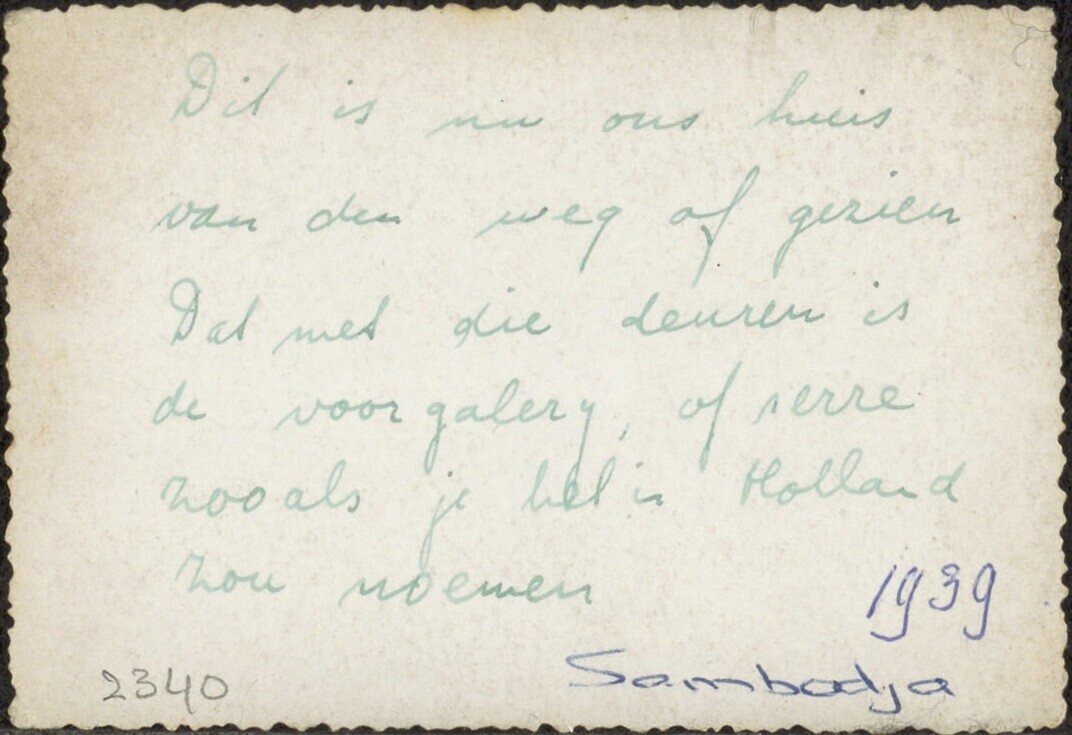 Dit is nu ons huis
van den weg af gezien
Dat met die deuren is
de voorgalery, of serre
zooals je het in Holland
zou noemen
1939
Sambodja
2340